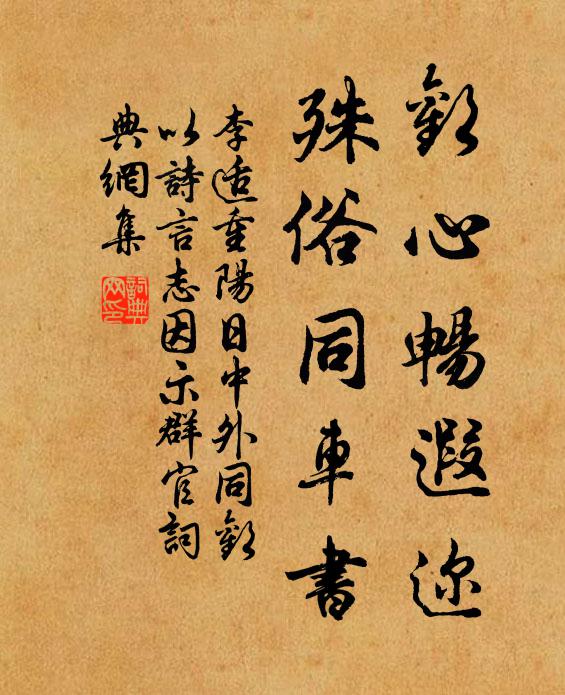 歡心暢遐邇
殊俗同車書
李适重陽日中外同歡
以詩言志因示群官詞
典網集
詞典網印